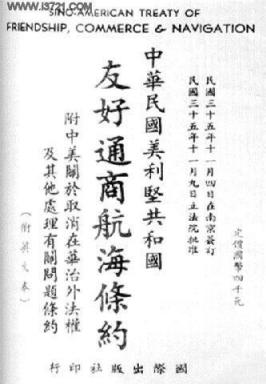 www.i3721.com
SINO-AMERICAN TREATY OF
FRIENDSHIP, COMMERCE & NAVIGATION
民國三十五年十一月四日在南京簽訂
民國三十五年十一月九日立法院批准
中華民國美利堅共和國
友好通商航海條約
附中美關於取消在華治外法權
及其他處理有關問題條約
(附英文本)
定價國幣四千元
國際出版社印行